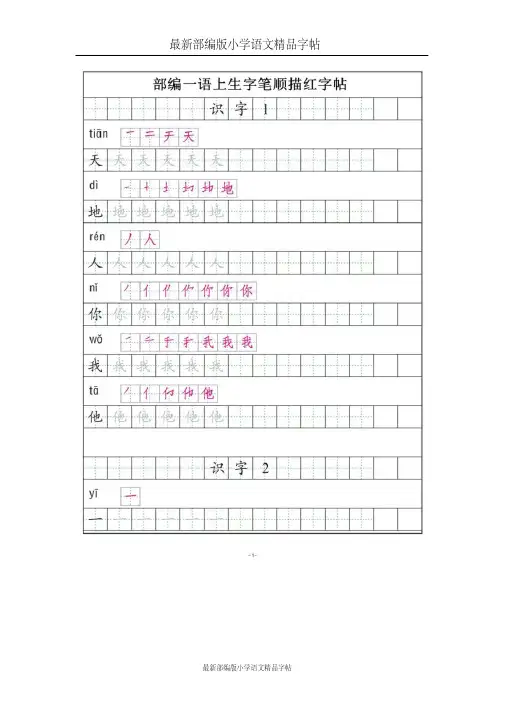 最新部编版小学语文精品字帖
部编一语上生字笔顺描红字帖
识字1
tiān 一 二 于 天
天 天 天 天 天 天
dì 一 十 土 圵 地 地
地 地 地 地 地 地
rén 丿 人
人 人 人 人 人 人
nǐ 丿 亻 你
你 你 你 你 你 你
wǒ 一 二 于 手 我 我 我
我 我 我 我 我 我
tā 丿 亻 他 他
他 他 他 他 他 他
识字2
yī 一
一 一 一 一 一 一
-1-
最新部编版小学语文精品字帖